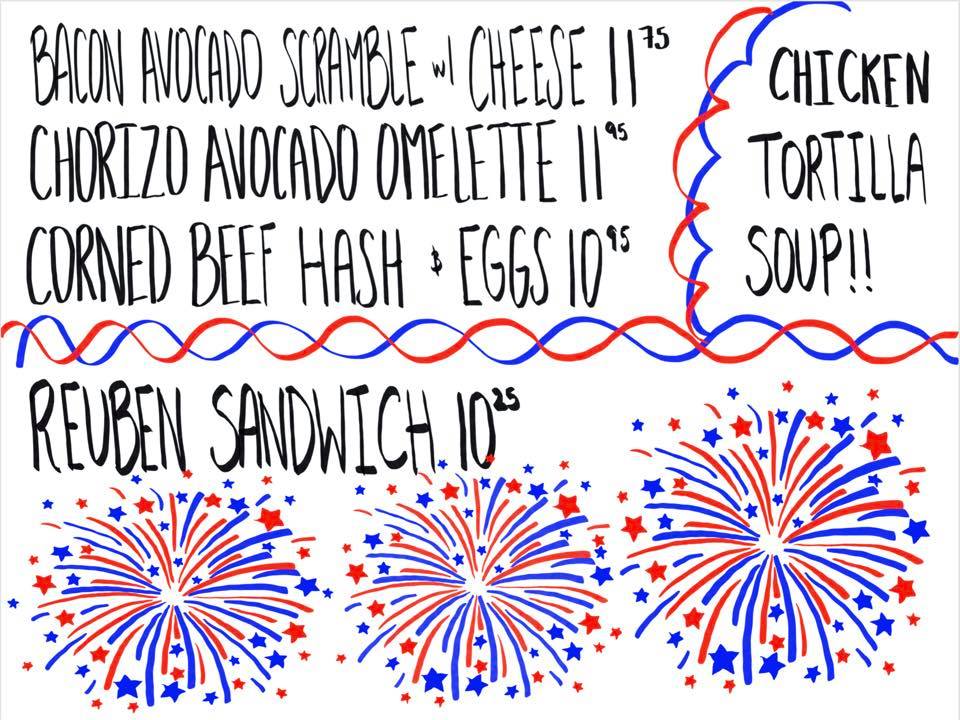 BACON AVOCADO SCRAMBLE w/ CHEESE 11 75
CHORIZO AVOCADO OMELETTE 11 95
CORNED BEEF HASH & EGGS 10 95
CHICKEN
TORTILLA
SOUP!!
REUBEN SANDWICH 10 25